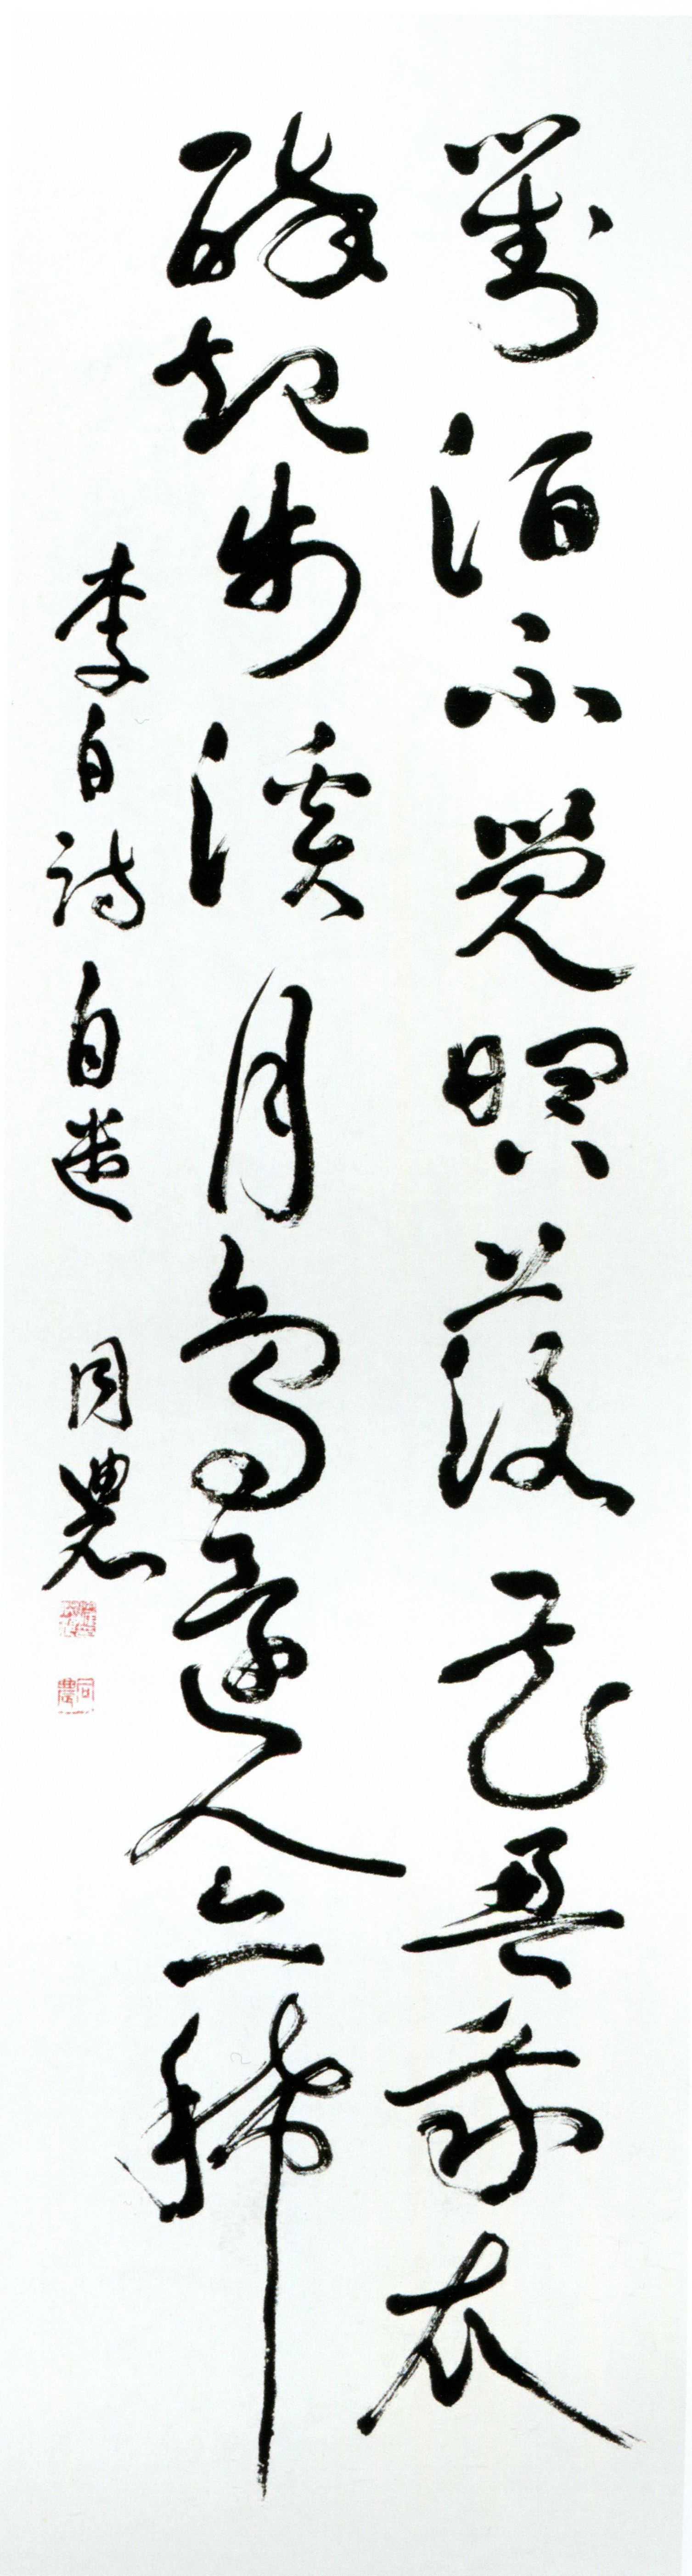 對酒不覺暝落花盈我衣
醉起步溪月鳥還人亦稀
李白詩自遣 同農
同農